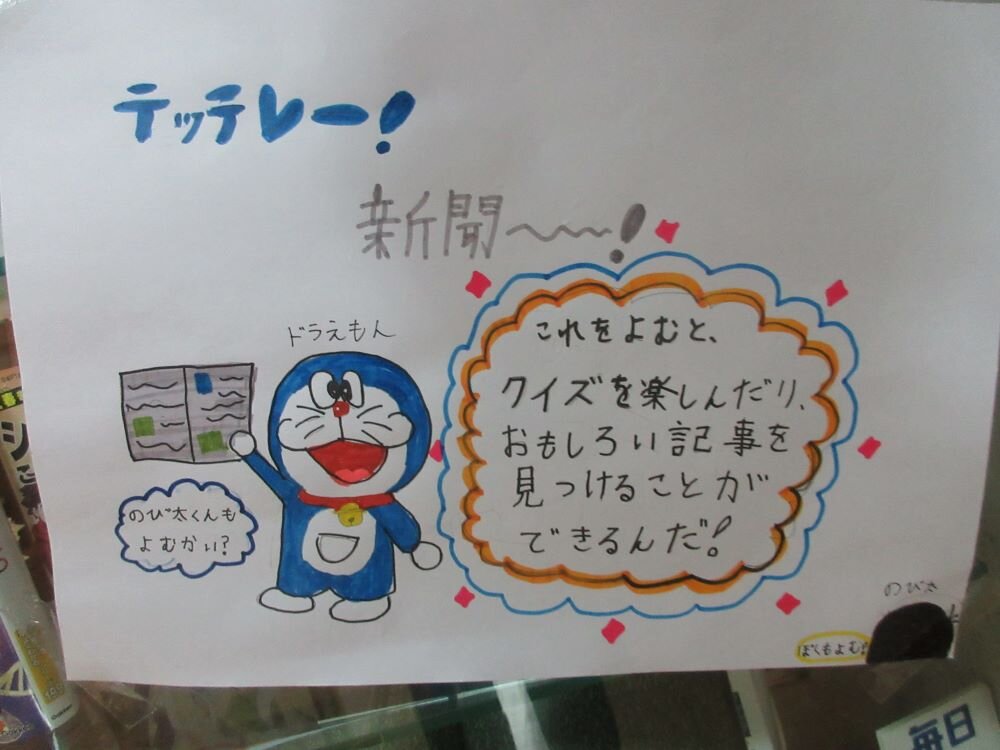 テッテレー!
新聞〜〜!
ドラえもん
これをよむと、
クイズを楽しんだり、
おもしろい記事を
見つけることが
できるんだ!
のび太くんも
よむかい?
のび太
ぼくもよむ
毎日